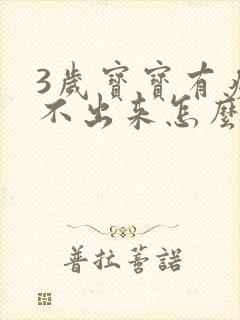 3歲寶寶有
不出来怎麽
普拉薈諾